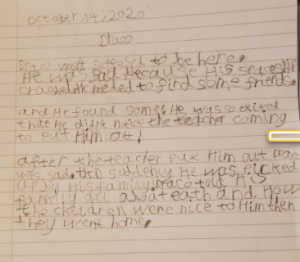 October 14, 2020
Draco
Draco wasn't supposed to be here.
He was sad because His spaceship
crashed he needed to find some friends.
and He found some! He was so exited
that He didnt notice the teacher coming
to put Him out!
after the teacher put Him out Draco
was sad. then suddenly He was picked
up by His family. Draco told His
family all about eath and How
the children were nice to Him then
they went home.